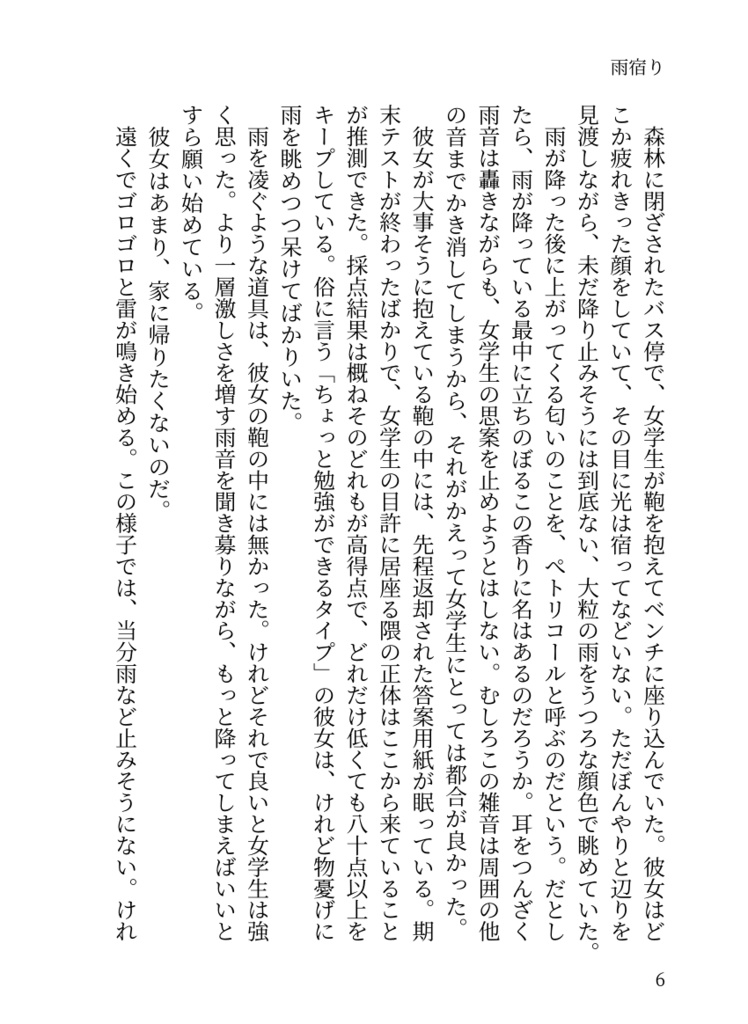 雨宿り
　森林に閉ざされたバス停で、女学生が鞄を抱えてベンチに座り込んでいた。彼女はど
こか疲れきった顔をしていて、その目に光は宿ってなどいない。ただぼんやりと辺りを
見渡しながら、未だ降り止みそうには到底ない、大粒の雨をうつろな顔色で眺めていた。
　雨が降った後に上がってくる匂いのことを、ペトリコールと呼ぶのだという。だとし
たら、雨が降っている最中に立ちのぼるこの香りに名はあるのだろうか。耳をつんざく
雨音は轟きながらも、女学生の思案を止めようとはしない。むしろこの雑音は周囲の他
の音までかき消してしまうから、それがかえって女学生にとっては都合が良かった。
　彼女が大事そうに抱えている鞄の中には、先程返却された答案用紙が眠っている。期
末テストが終わったばかりで、女学生の目許に居座る隈の正体はここから来ていること
が推測できた。採点結果は概ねそのどれもが高得点で、どれだけ低くても八十点以上を
キープしている。俗に言う「ちょっと勉強ができるタイプ」の彼女は、けれど物憂げに
雨を眺めつつ呆けてばかりいた。
　雨を凌ぐような道具は、彼女の鞄の中には無かった。けれどそれで良いと女学生は強
く思った。より一層激しさを増す雨音を聞き募りながら、もっと降ってしまえばいいと
すら願い始めている。
　彼女はあまり、家に帰りたくないのだ。
　遠くでゴロゴロと雷が鳴き始める。この様子では、当分雨など止みそうにない。けれ
6